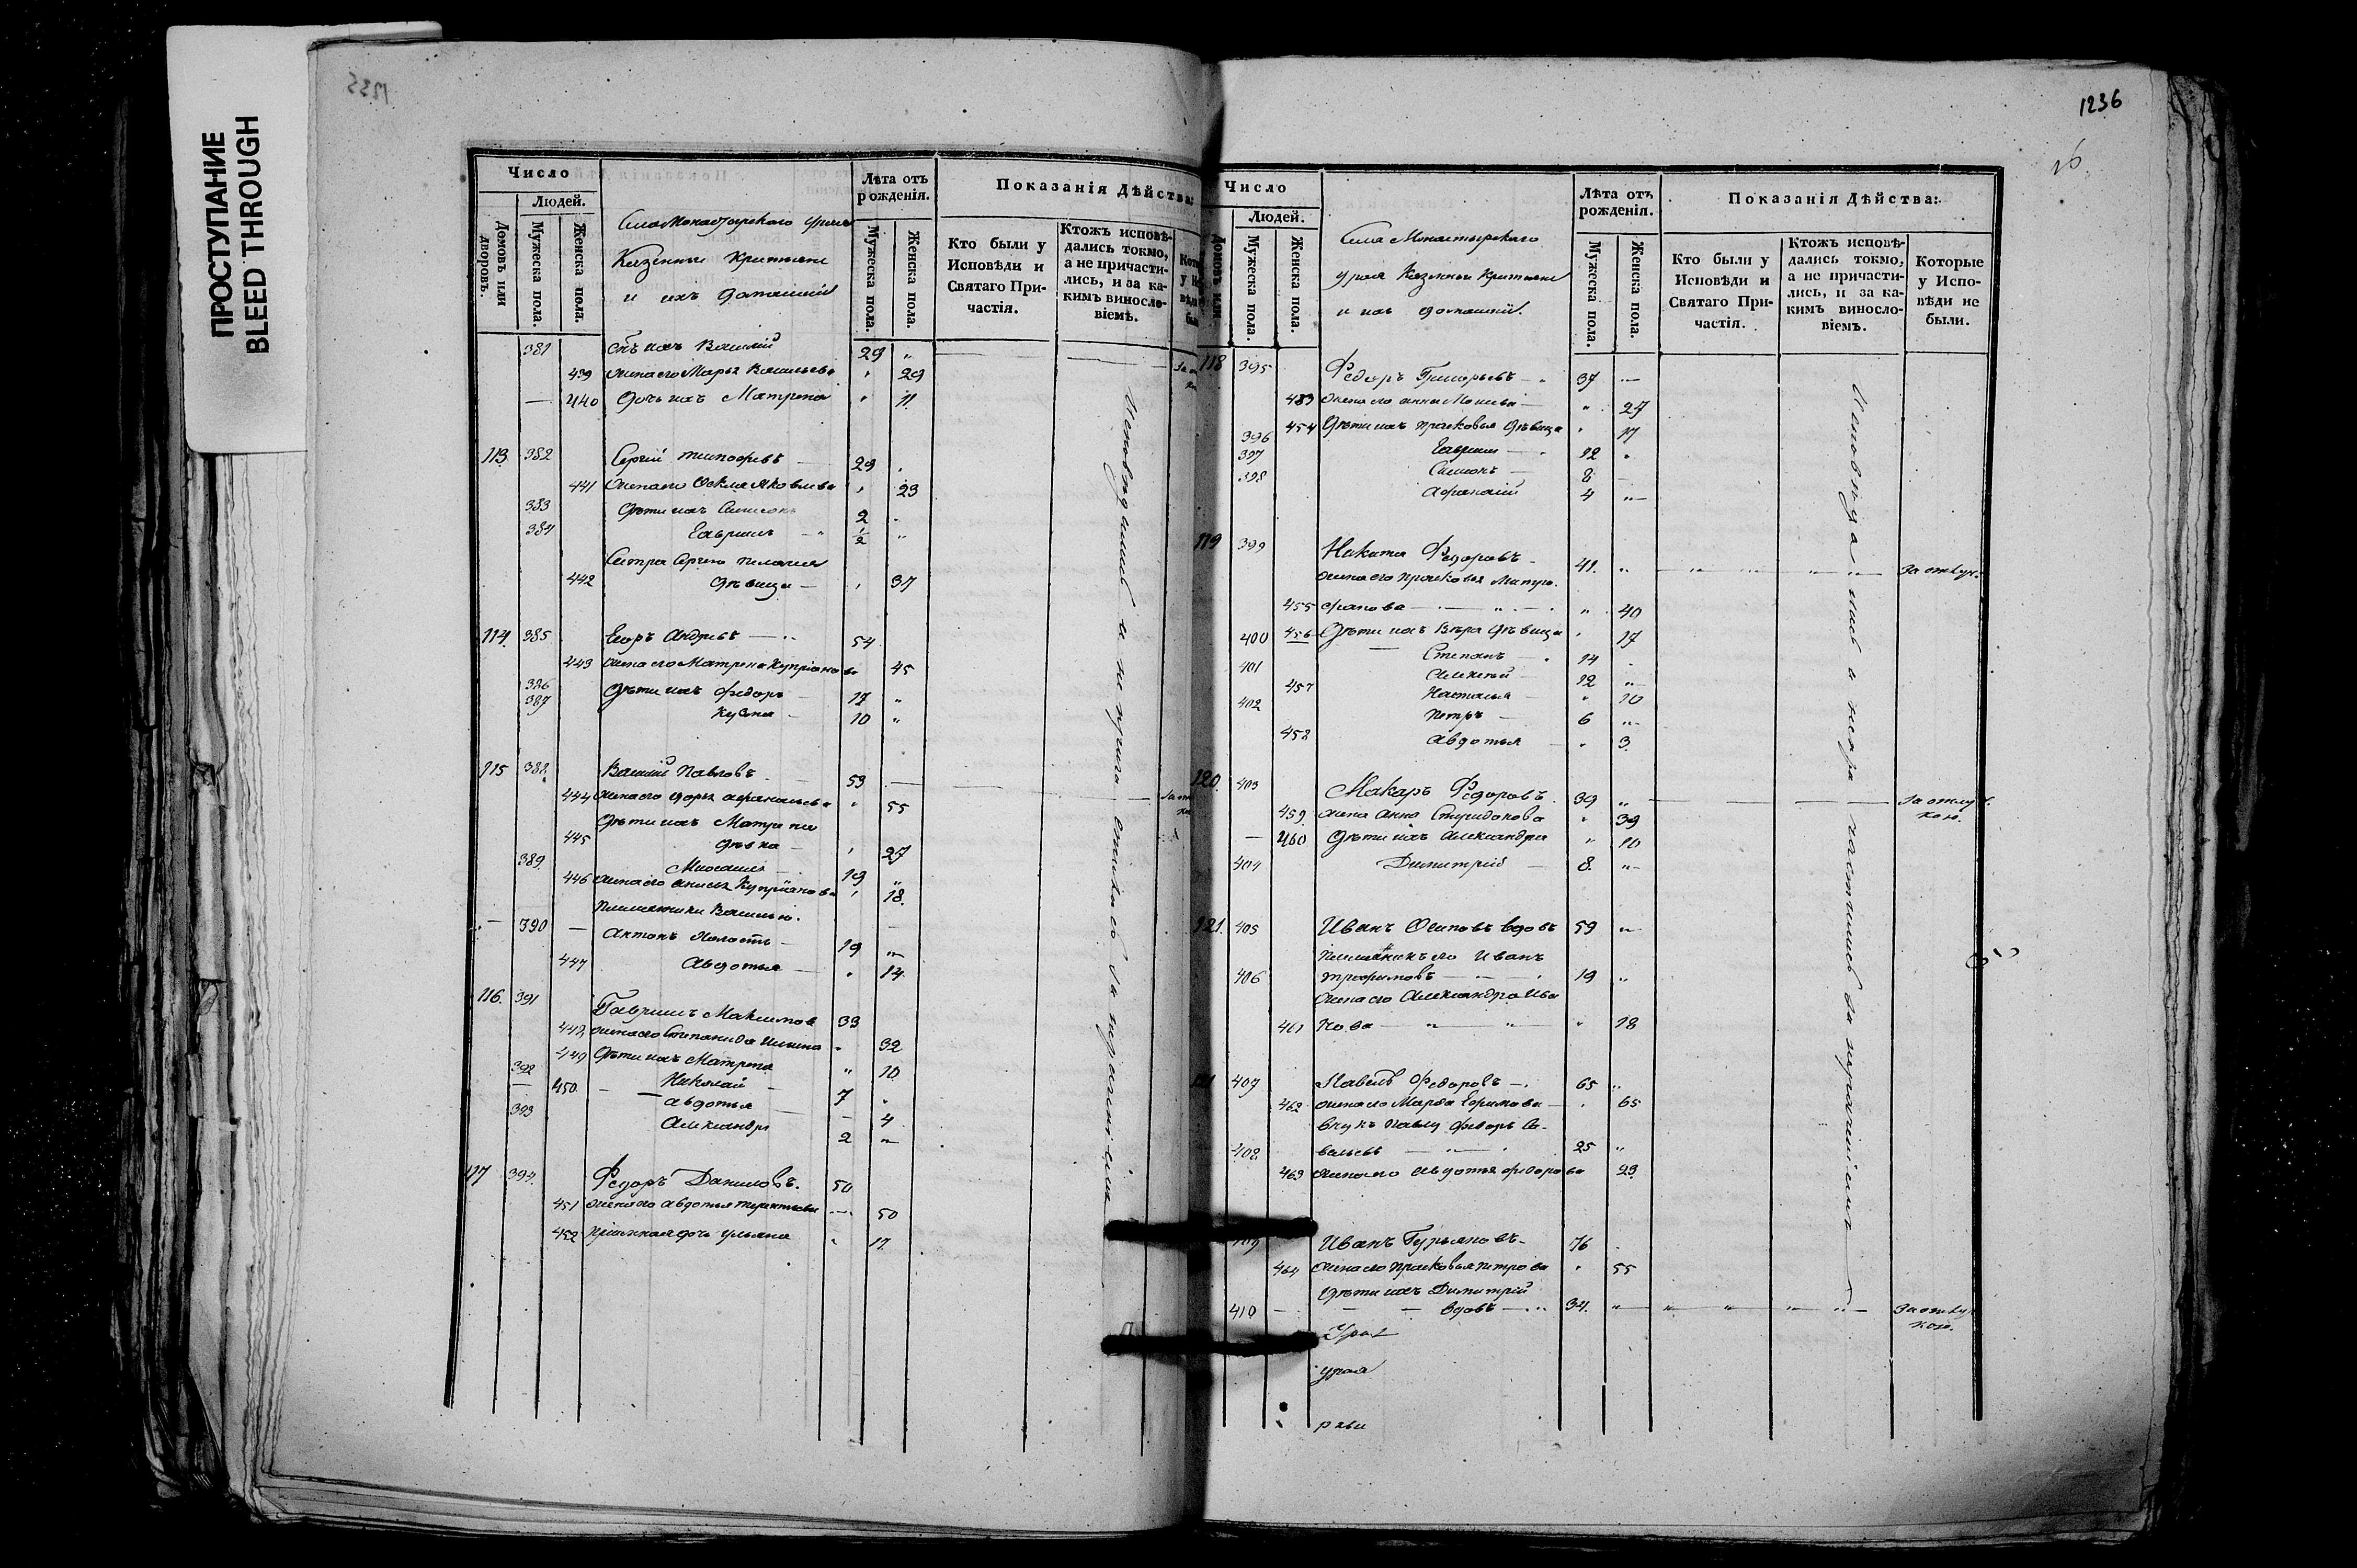 ПРОСТУПАНИЕ
BLEED THROUGH
1235
Число
Людей.
Домовъ или дворовъ.
Мужеска пола.
Женска пола.
Казенные Крестьяне
и ихъ домашніе
Лѣта отъ рожденія.
Мужеска пола.
Женска пола.
Показанія Дѣйства:
Кто были у Исповѣди и Святаго Причастія.
Ктожъ исповѣдались токмо, а не причастились, и за какимъ винословіемъ.
381 сынъ ихъ Василій 29 "
439 жена его Марья Васильева " 29
— 440 дочь ихъ Матрена " 11.
113. 382 Сергій Тимофеевъ — 29 "
441 жена его Фекла Яковлева " 23
383 Дѣти ихъ Симеонъ 2 "
384 Гавріилъ — " 1/2 "
Сестра Сергею Пелагея
442 дѣвица — " 37
114. 385 Егоръ Андреевъ — " 54
443 жена его Матрена Купріанова 45
386 Дѣти ихъ Федоръ — 17 "
387 Кузма — 10 "
115 388. Василій Павловъ — 53 —
444 жена его Дарья Афанасьева " 55
Дѣти ихъ Матрена
445 дѣвка — " 27
389. Михаилъ — 19 "
446 жена его Анисья Купріанова " 18.
Племянники Василью.
— 390 — Антонъ холостъ — 19 "
447 Авдотья — " 14.
116. 391 Гавріилъ Максимов 33
448 жена его Степанида Ильина " 32
449 Дѣти ихъ Матрена " 10
392 Николай — 7 "
450. Авдотья — 4
393 Александръ 2 "
117 394. Федоръ Даниловъ. 50
451 жена его Авдотья Терентьева — 50
452 дочь Ульяна " 17.
Исповѣдались и не причастились за нераченіемъ
1236
Число
Людей.
Домовъ или
Мужеска пола.
Женска пола.
Села Монастырскаго
Урая Казенные Крестьяне
и ихъ домашніе.
Лѣта отъ рожденія.
Мужеска пола.
Женска пола.
Показанія Дѣйства:
Кто были у Исповѣди и Святаго Причастія.
Ктожъ исповѣдались токмо, а не причастились, и за какимъ винословіемъ.
Которые у Исповѣди не были.
118 395 Федоръ Григорьевъ — " 37 —
453 жена его Анна — " 27
454 Дѣти ихъ Прасковья дѣвица " 17
396 Гавріилъ — " 12 "
397 Симеонъ — 8 —
398 Афанасій 4 "
119 399 Никита Федоровъ — 41. " — за отлуч.
жена его Прасковья Митро-
455 фанова — " 40
456 Дѣти ихъ Вѣра дѣвица " 17
400 Степанъ — " 14 "
401 Алексѣй — 12 "
457 Наталья — " 10
402 Петръ — 6 "
458 Авдотья — " 3.
120. 403 Макаръ Федоровъ 39 " — за отлуч-
кою.
459. жена Анна Спиридонова " 39
— 460 Дѣти ихъ Александра " 10
404 Димитрій — 8. "
121. 405 Иванъ Осиповъ вдовъ 59 "
Племянникъ его Иванъ
406 Трофимовъ — 19 "
жена его Александра Ива-
461 нова — " 18
407 Павелъ Федоровъ — 65 "
462 жена его Марѳа Ефимова — " 65
внукъ Павлу Федоръ Са-
408 вельевъ — 25 "
463 жена его Авдотья Федорова 23.
409 Иванъ Гурьяновъ — 76 "
464 жена его Прасковья Петрова " 55
Дѣти ихъ Димитрій
410 — вдовъ — 34. " — за отлуч-
кою.
урая
Исповѣдались а не причастились за нераченіемъ